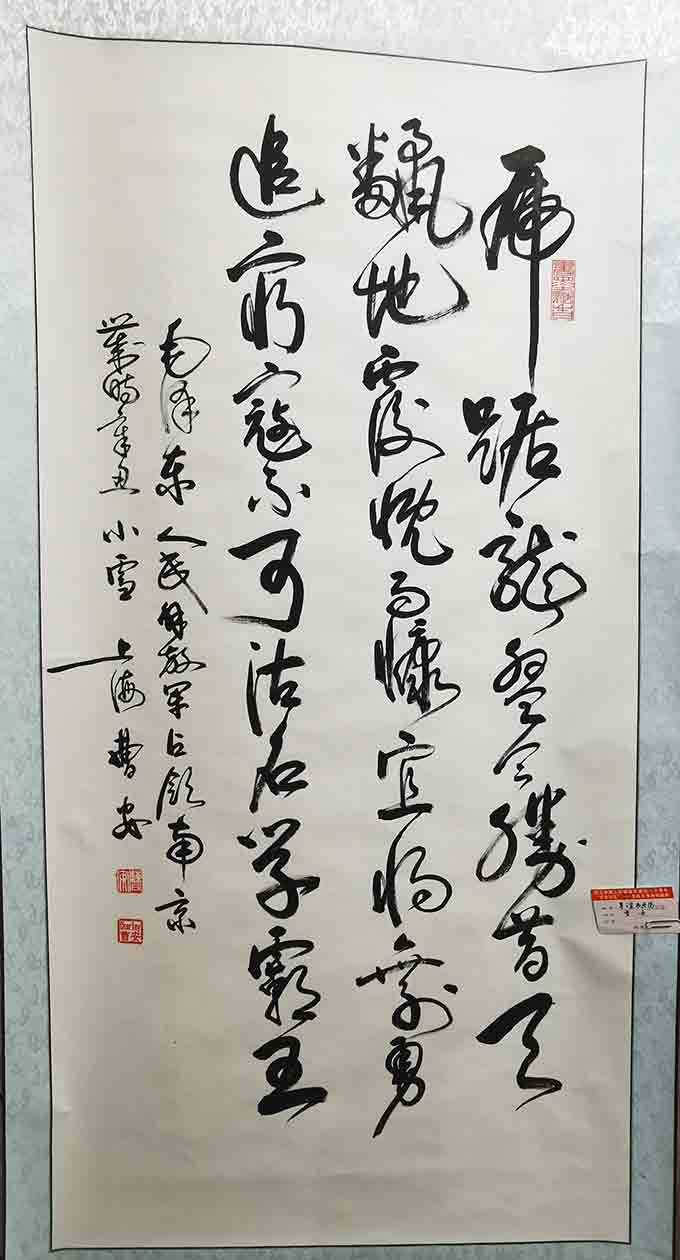 虎踞龙盘今勝昔天
飜地覆慨而慷宜将剩勇
追穷寇不可沽名学霸王
毛泽东人民解放军占领南京
歲时辛丑小雪上海曹安